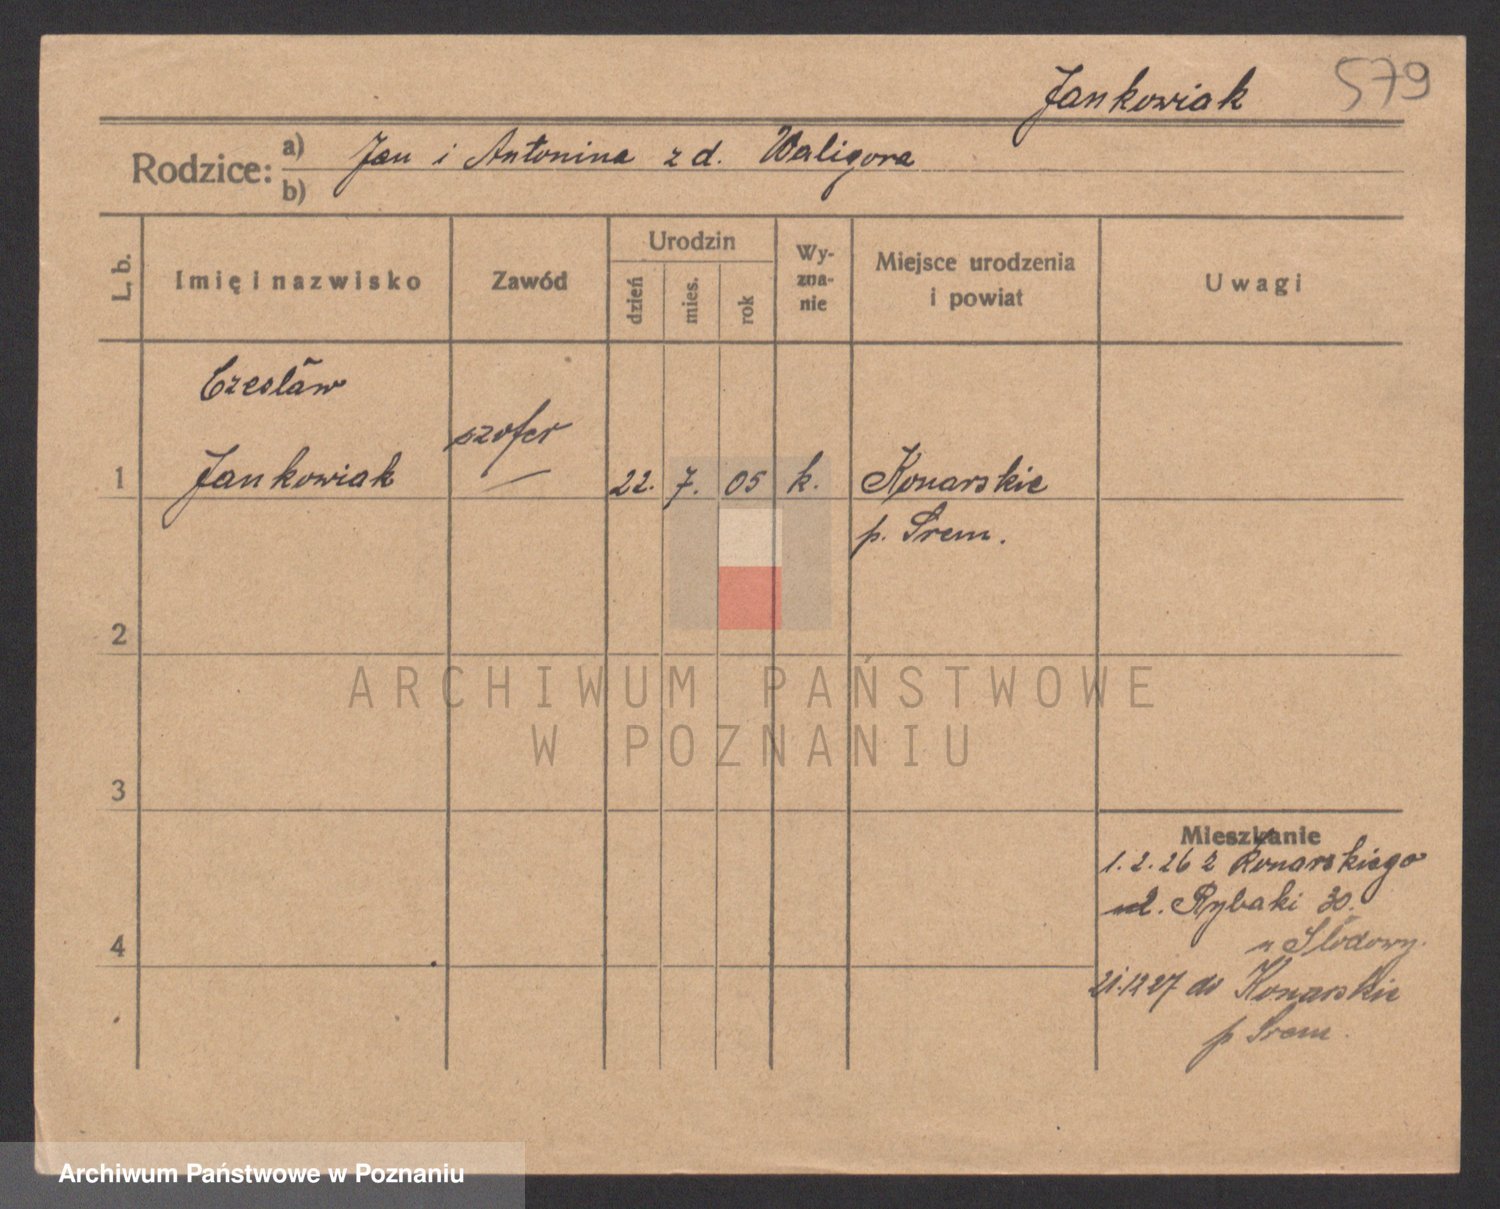 Jankowiak 579
Rodzice: a) Jan i Antonina z d. Waligora
b)
L. b. Imię i nazwisko Zawód Urodzin dzień mies. rok Wyznanie Miejsce urodzenia i powiat Uwagi
Czesław
szofer
1 Jankowiak — 22. 7. 05 k. Konarskie
p. Śrem.
2
ARCHIWUM PAŃSTWOWE
W POZNANIU
3
Mieszkanie
1. 2. 26 z Konarskiego
ul. Rybaki 30.
u Słodowy.
4
21.12 27 do Konarskie
p Śrem.
Archiwum Państwowe w Poznaniu